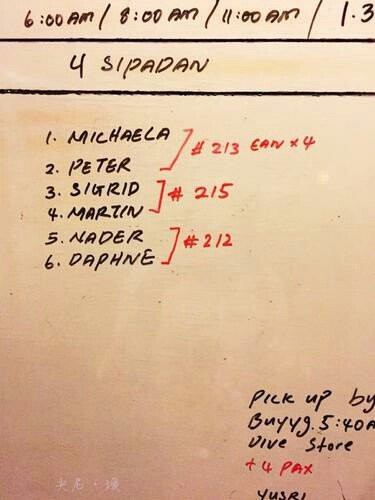 6:00AM / 8:00AM / 11:00AM / 1.3
4 SIPADAN
1. MICHAELA
# 213 EAN x 4
2. PETER
3. SIGRID
# 215
4. MARTIN
5. NADER
# 212
6. DAPHNE
PICK UP by
5:40A
Dive Store
+ 4 PAX
YUSRI